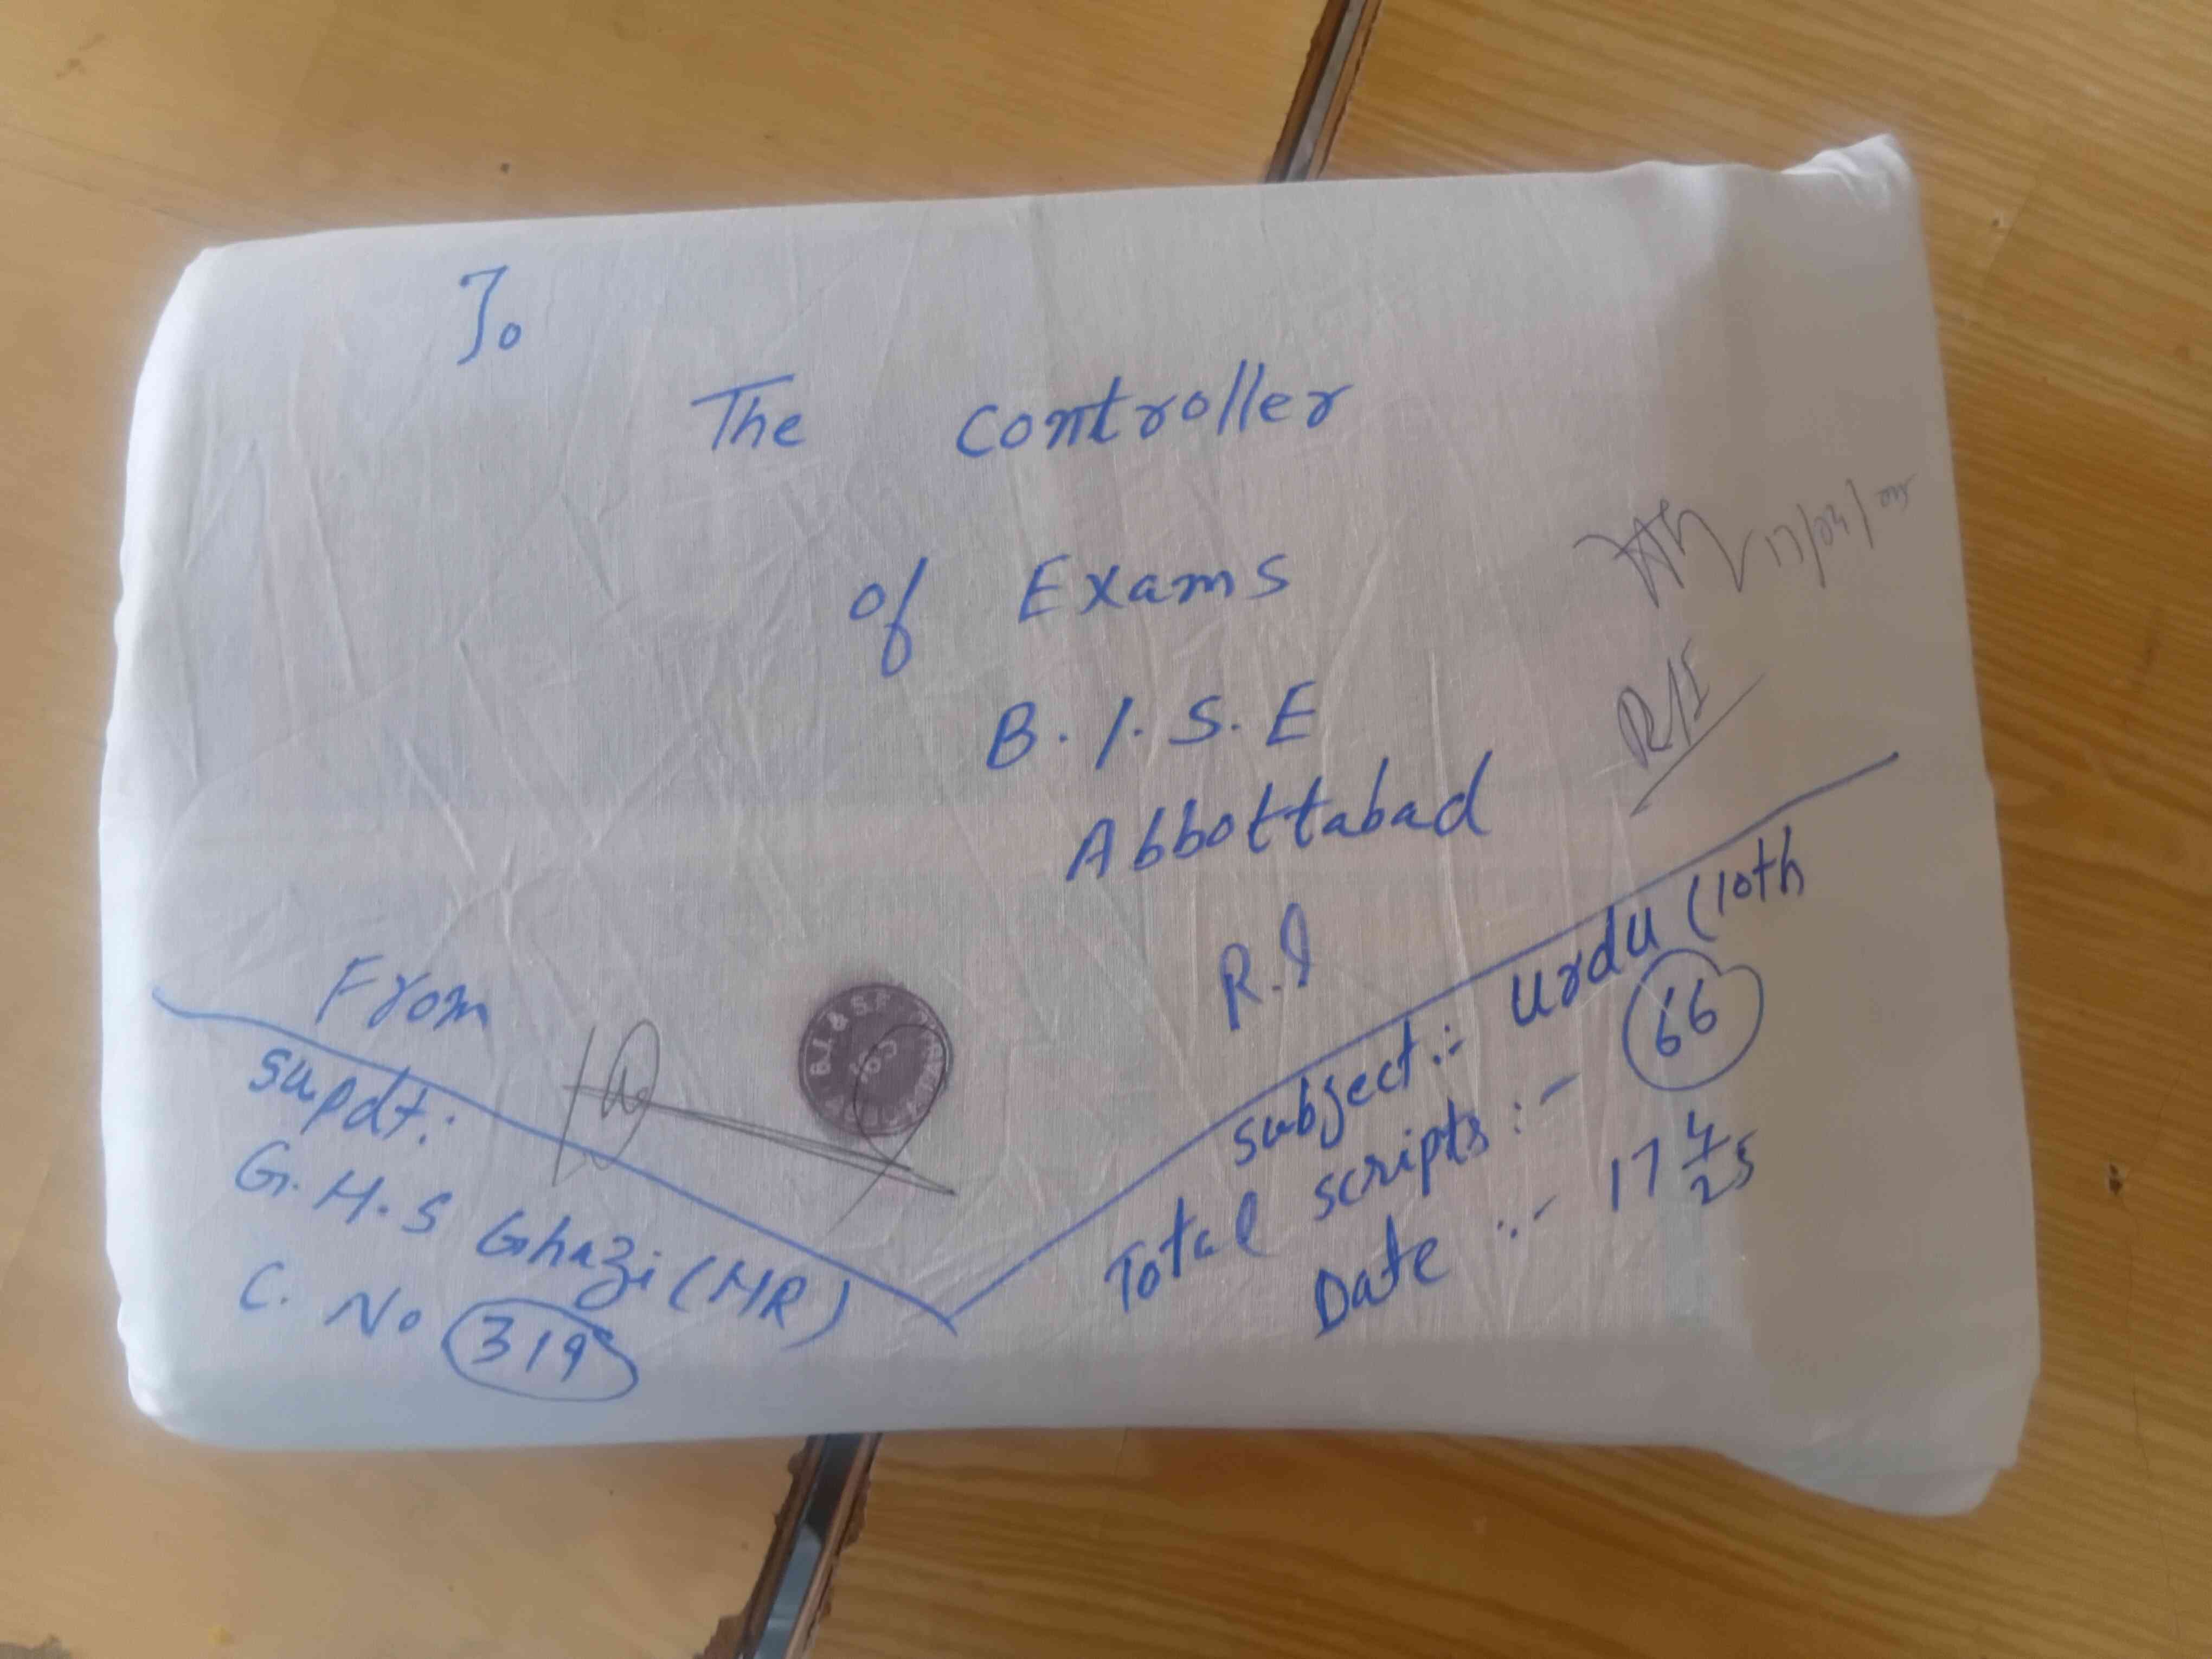 To
The Controller
of Exams
B.I.S.E
Abbottabad
R.I
17/04/
From
Supdt:
G.H.S Ghazi (HR)
C. No 319
Subject:- Urdu (10th
Total scripts:- 66
Date :- 17 4/25